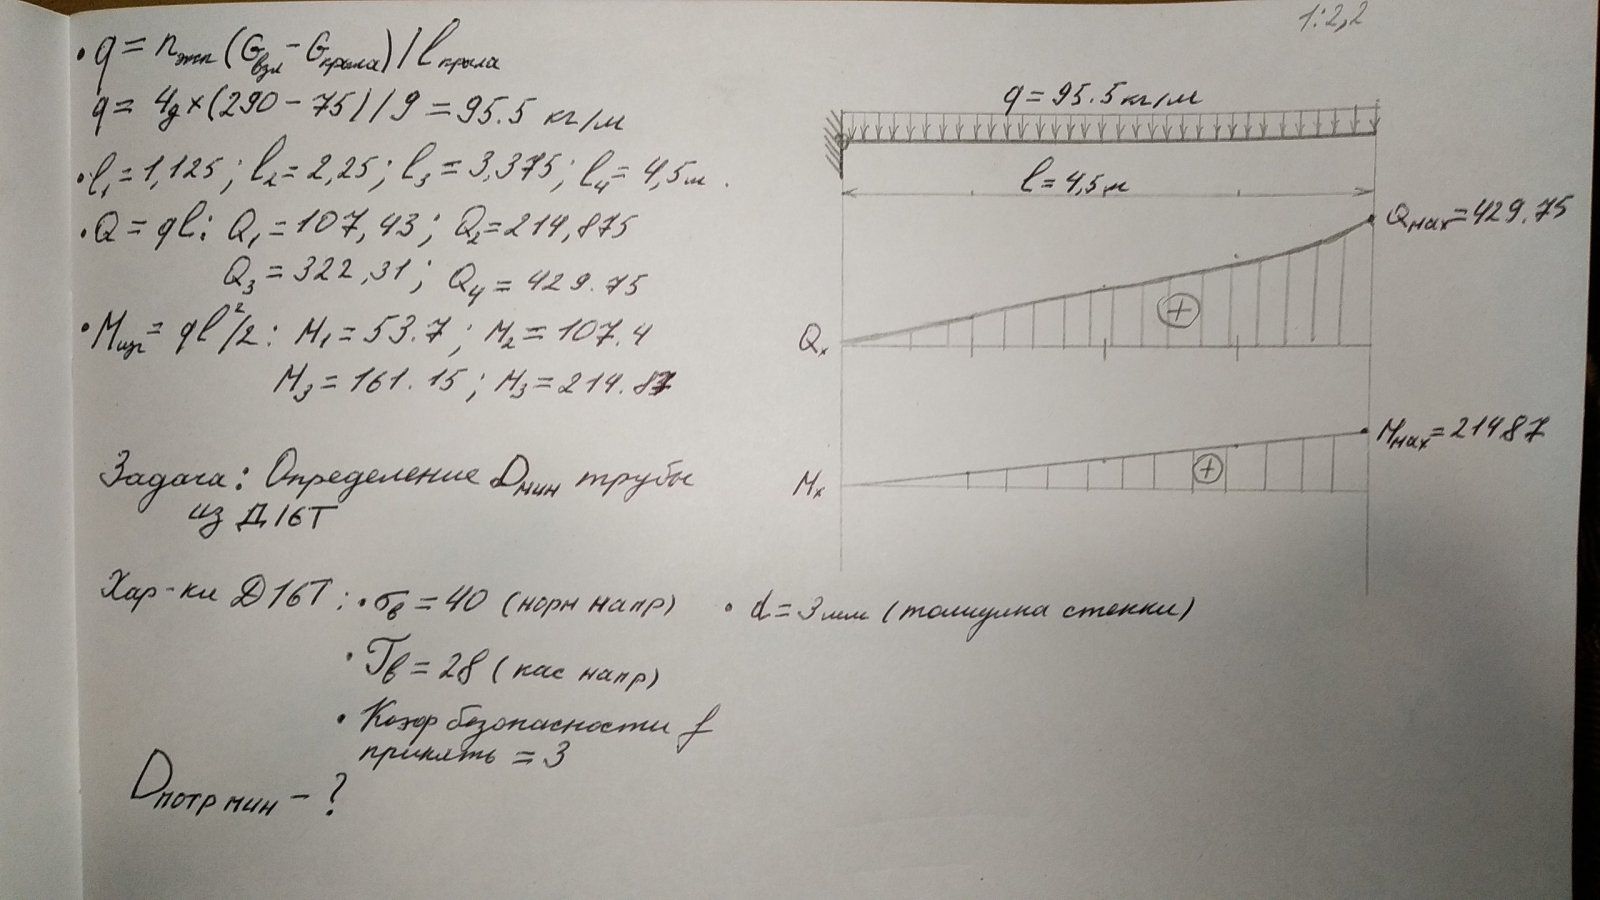 1:2,2
• q = n экп (G взл - G крыла) / l крыла
q = 4g × (290 - 75) / 9 = 95.5 кг/м
• l₁ = 1,125 ; l₂ = 2,25 ; l₃ = 3,375 ; l₄ = 4,5м .
• Q = ql : Q₁ = 107,43 ; Q₂ = 214,875
Q₃ = 322,31 ; Q₄ = 429.75
• Mизг = ql²/2 : M₁ = 53.7 ; M₂ = 107.4
M₃ = 161.15 ; M₃ = 214.87
Задача: Определение Dмин трубы
из Д16Т
Хар-ки Д16Т : • σв = 40 (норм напр)
• d = 3мм (толщина стенки)
• Tв = 28 (кас напр)
• Коэф безопасности f
принять = 3
Dпотр мин - ?
q = 95.5 кг/м
l = 4,5м
Qмах = 429.75
Qx
+
Mмах = 21487
Mx
+